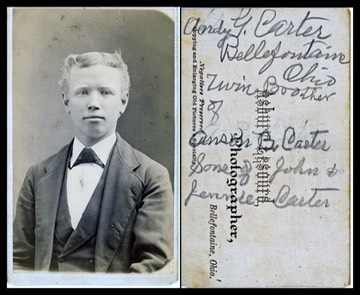 Andy G. Carter
Bellefontain
Ohio
Twin Brother
of
Anson B. Carter
Sons of John &
Carter
Negatives Preserved.
Copying and Enlarging Old Pictures a Specialty.
Photographer,
Bellefontaine, Ohio.